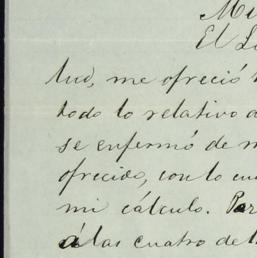 Mu
El L
lud, me ofreció
todo lo relativo a
se enfermó de m
ofrecido, con lo cua
mi cálculo. Por
á las cuatro de l